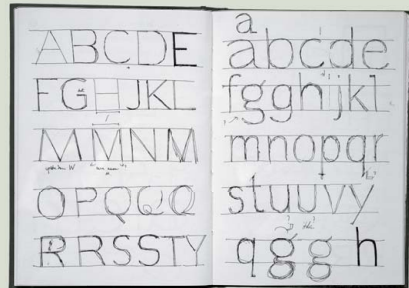 ABCDE
FGHJKL
I
MMNM
OPQQQ
RRSSTY
a
abcde
fgghijkl
mnopqr
stuuvy
qggh